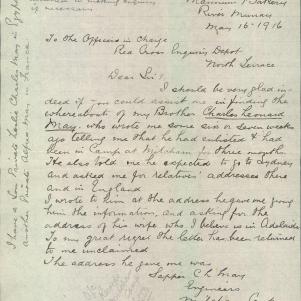 Mannum Bakery
River Murray
May 16 - 1916
To The Officers in Charge
Red Cross Enquiry Depot
North Terrace
Dear Sirs
I should be very glad in-
deed if you could assist me in finding the
whereabouts of my Brother Charles Leonard
May. who wrote me some six or seven weeks
ago telling me that he had enlisted & had
been in Camp at Mitcham for three months
He also told me he expected to go to Sydney
and asked me for relatives' addresses there
and in England
I wrote to him at the address he gave me giving
him the information, and asking for the
address of his wife who I believe is in Adelaide
To my great regret the letter has been returned
to me unclaimed
The address he gave me was
Sapper C L May
Engineers
I have one Private Leslie Charles May in Egypt
another Private Alfred May in France